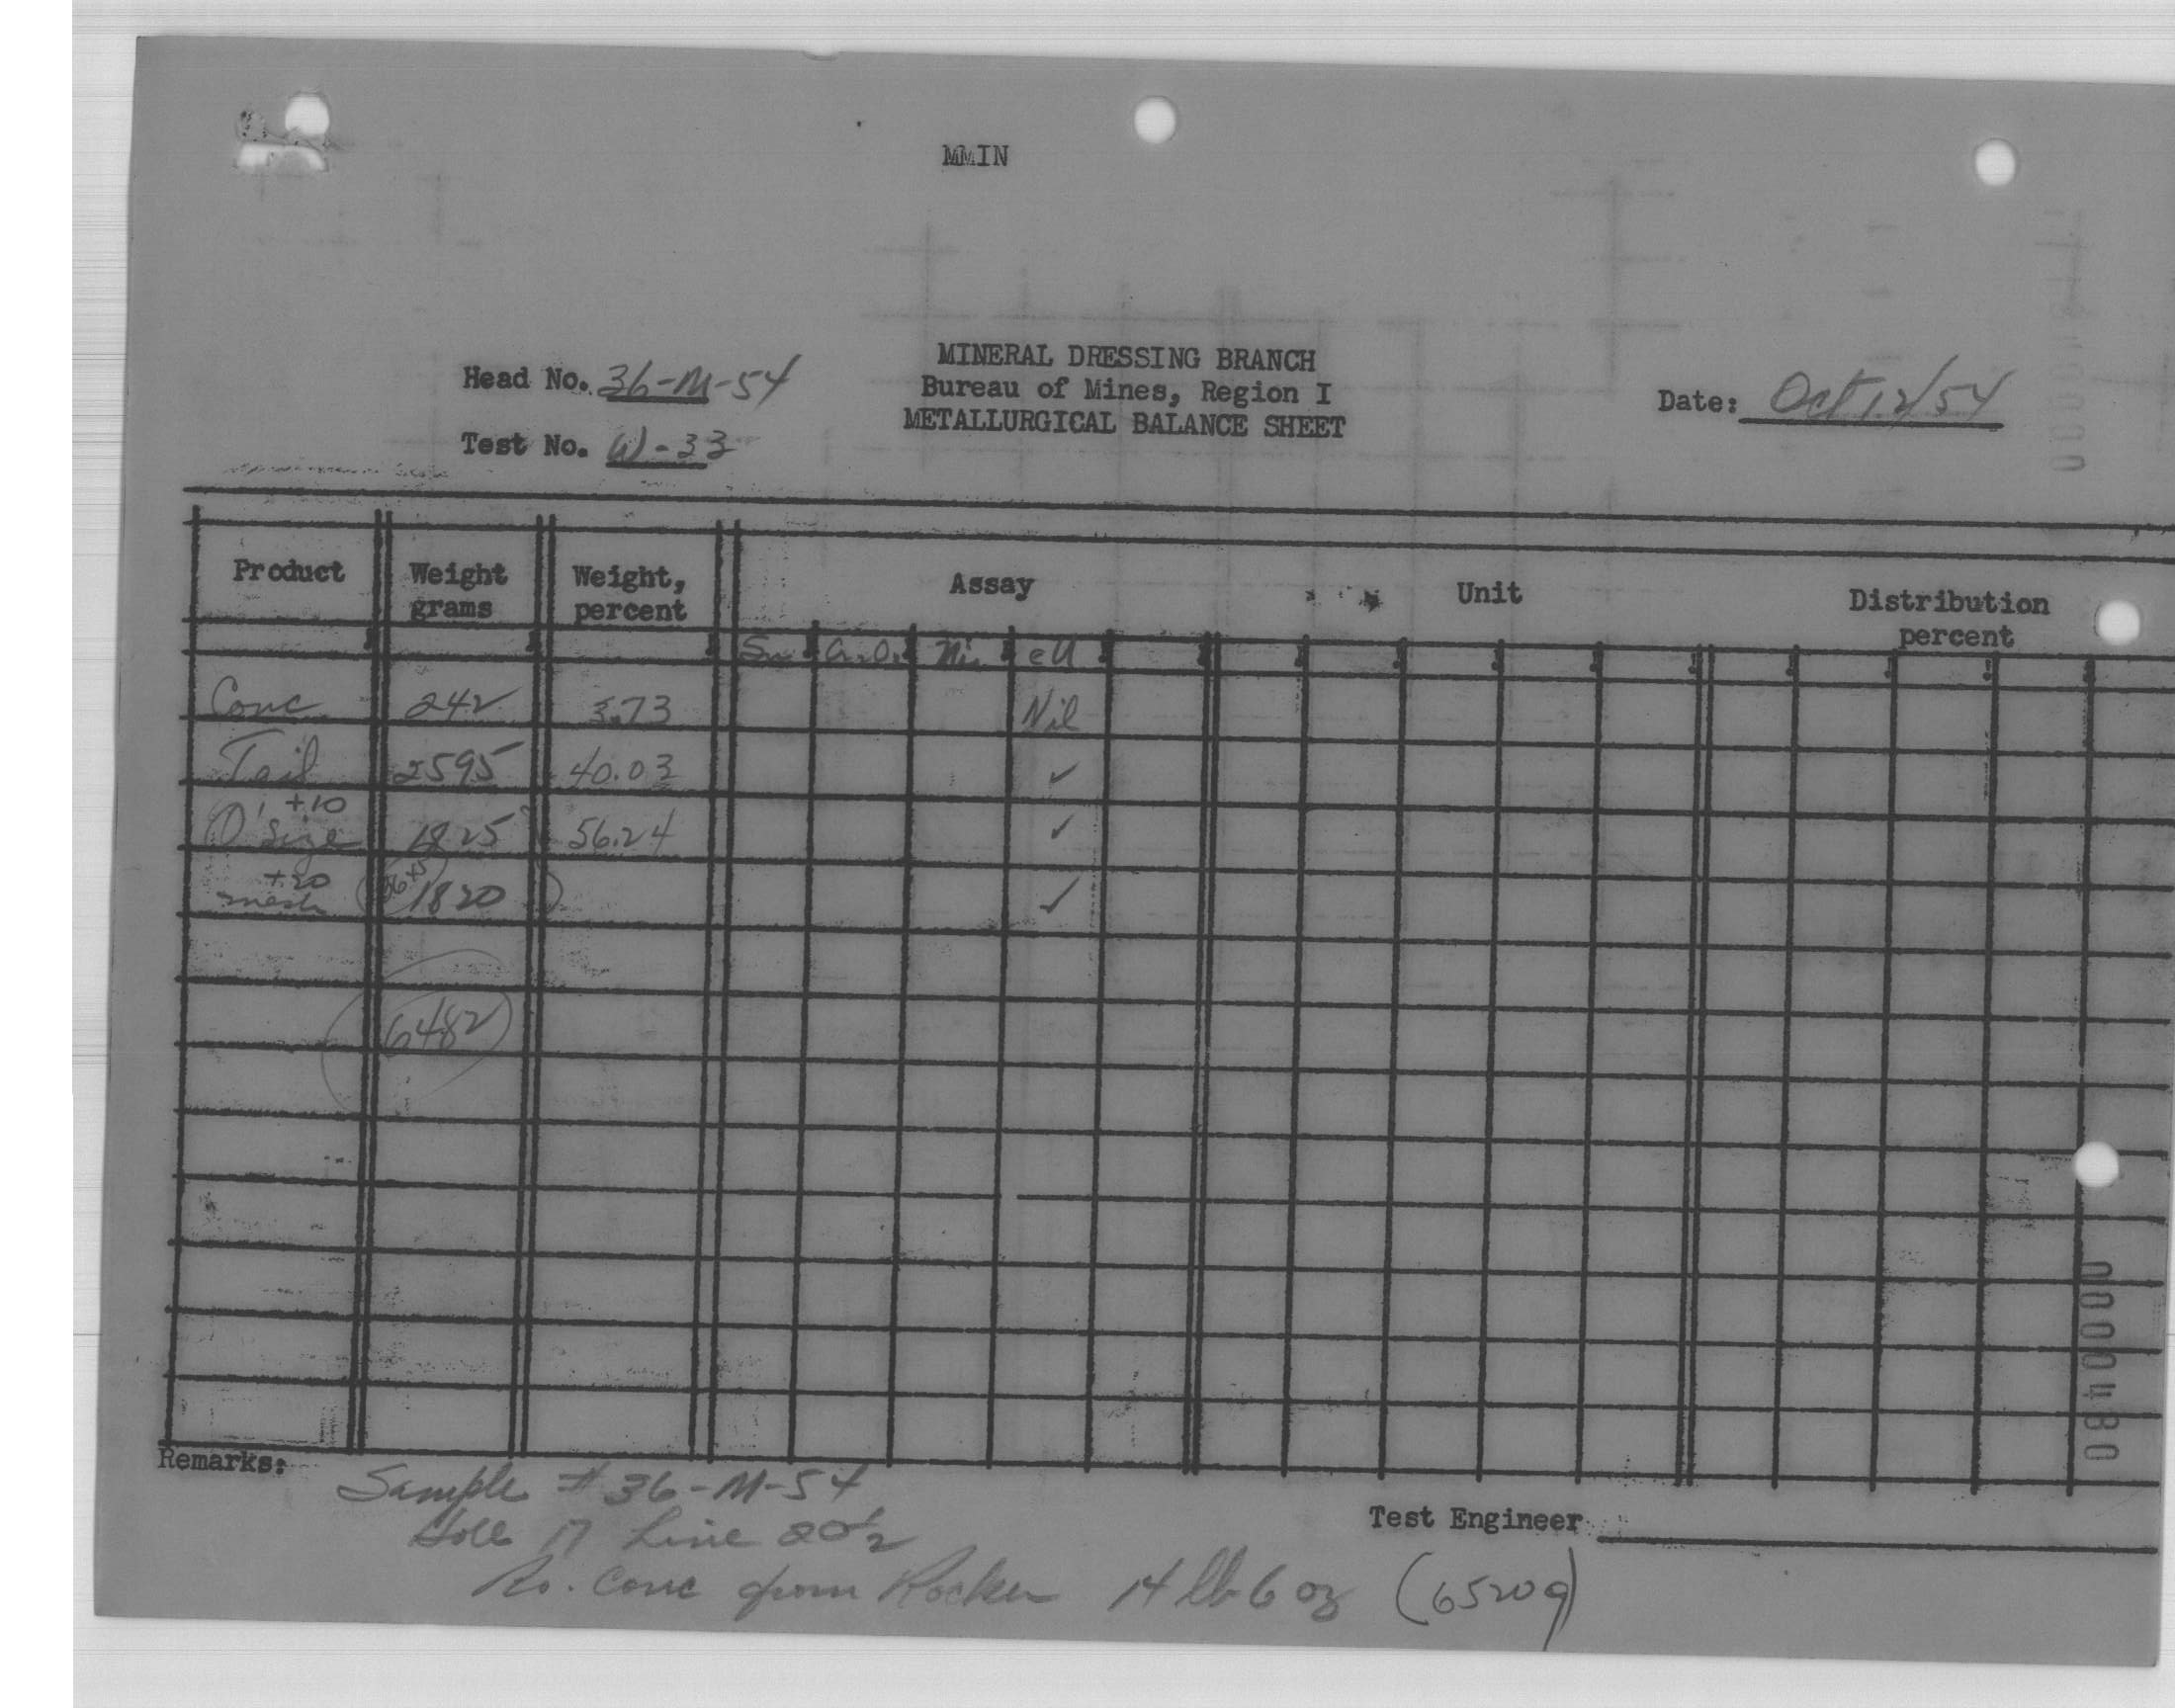 MMIN
MINERAL DRESSING BRANCH
Head No. 36-M-54 Bureau of Mines, Region I Date: Oct 12/54
METALLURGICAL BALANCE SHEET
Test No. W-33
Product Weight grams Weight, percent Assay Unit Distribution percent
Sn Ni eU
Conc 242 3.73 Nil
Tail 2595 40.03 ✓
+10
O'Size 1825 56.24 ✓
+20
mesh 1820 ✓
6482
0000480
Remarks:
Sample # 36-M-54
Test Engineer
Hole 17 Line 20½
Ro. Conc from Rocker 14 lb 6 oz (6520g)